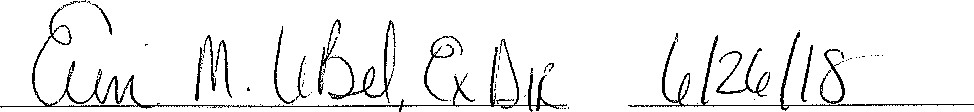 Erin M. UBel, Ex Dir 6/26/18